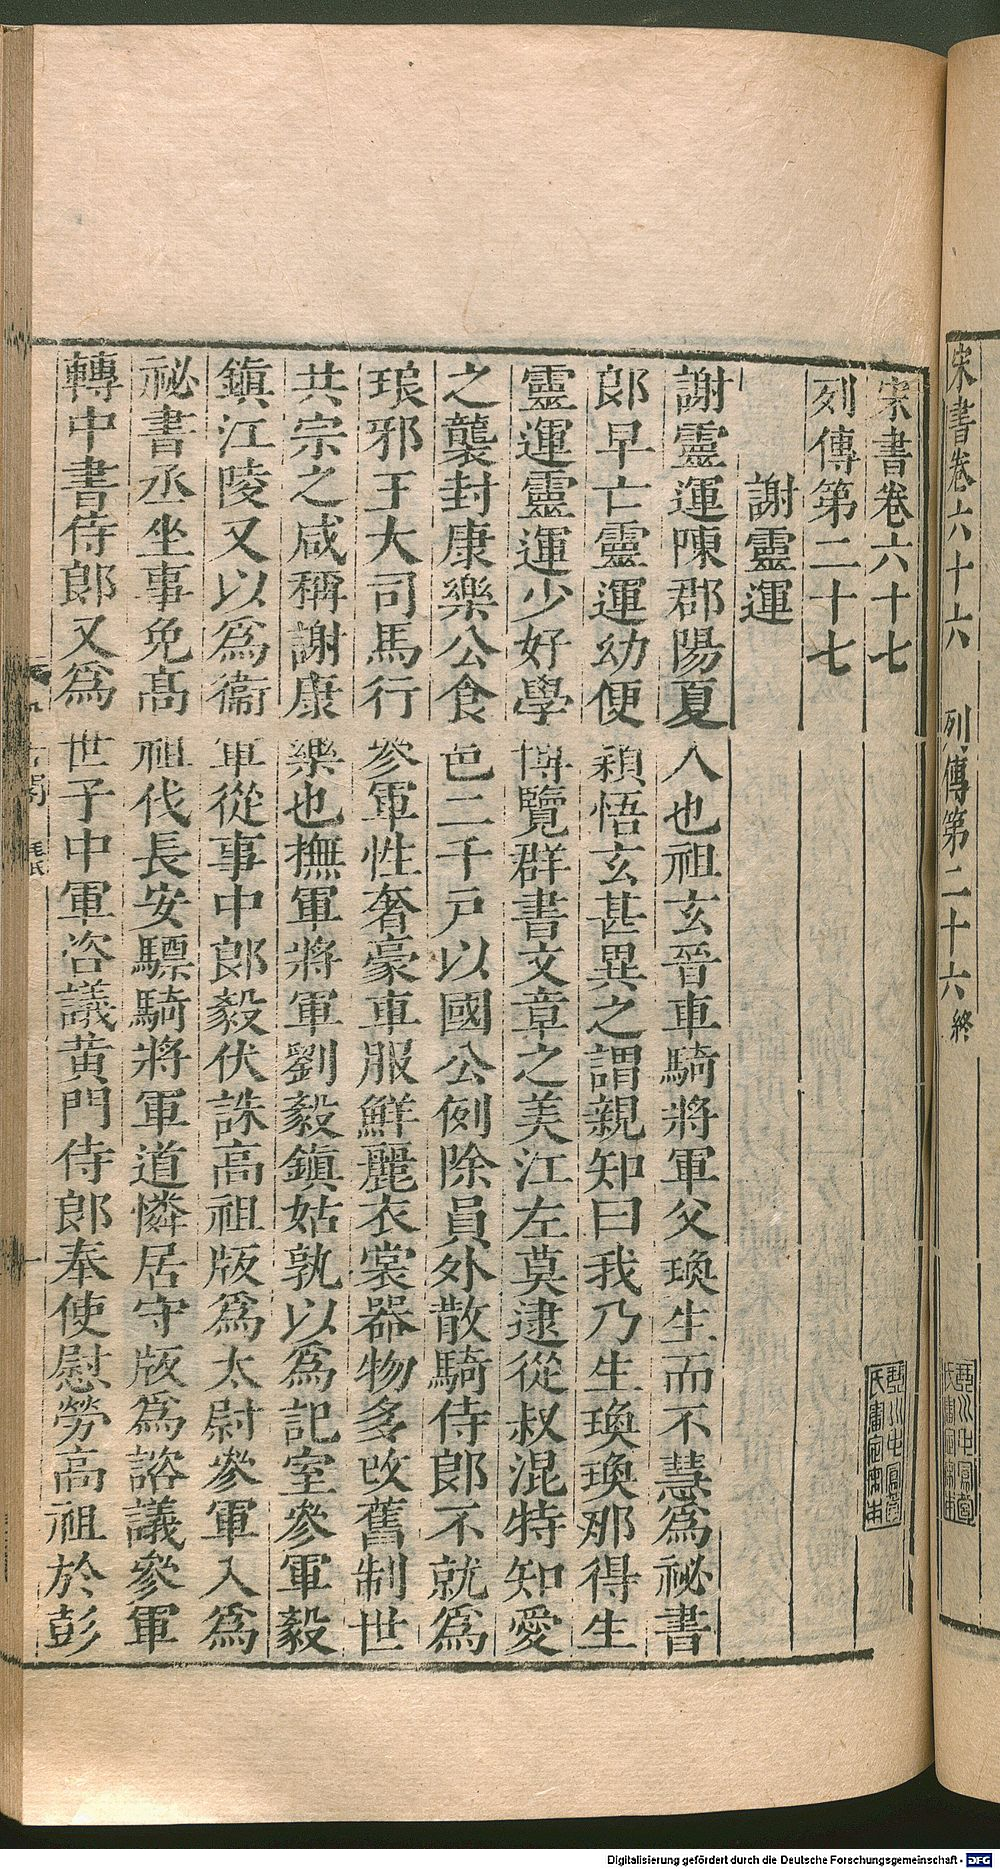 宋書卷六十六　列傳第二十六終
宋書卷六十七
列傳第二十七
謝靈運
謝靈運陳郡陽夏人也祖玄晉車騎將軍父瑍生而不慧爲祕書
郎早亡靈運幼便穎悟玄甚異之謂親知曰我乃生瑍瑍那得生
靈運靈運少好學博覽群書文章之美江左莫逮從叔混特知愛
之襲封康樂公食邑二千戸以國公例除員外散騎侍郎不就爲
琅邪王大司馬行參軍性奢豪車服鮮麗衣裳器物多改舊制世
共宗之咸稱謝康樂也撫軍將軍劉毅鎭姑孰以爲記室參軍毅
鎭江陵又以爲衞軍從事中郎毅伏誅高祖版爲太尉參軍入爲
祕書丞坐事免高祖伐長安驃騎將軍道憐居守版爲諮議參軍
轉中書侍郎又爲世子中軍咨議黃門侍郎奉使慰勞高祖於彭
毛氏
Digitalisierung gefördert durch die Deutsche Forschungsgemeinschaft - DFG